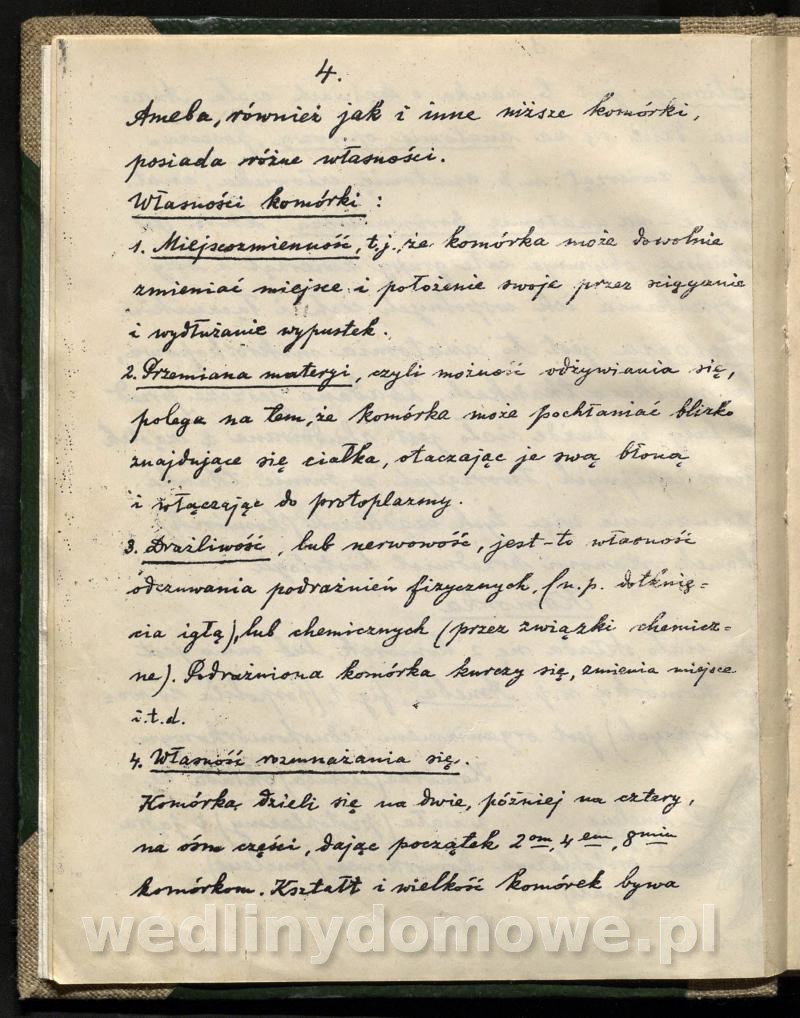 4.
Ameba, również jak i inne niższe komórki,
posiada różne własności.
Własności komórki :
1. Miejscozmienność, t.j., że komórka może dowolnie
zmieniać miejsce i położenie swoje przez sciąganie
i wydłużanie wypustek.
2. Przemiana materyi, czyli możność odżywiania się,
polega na tem, że komórka może pochłaniać blizko
znajdujące się ciałka, otaczając je swą błoną
i włączając do protoplazmy.
3. Drażliwość, lub nerwowość, jest-to własność
odczuwania podrażnień fizycznych, (n.p. dotknię=
cia igłą), lub chemicznych (przez związki chemicz=
ne). Podrażniona komórka kurczy się, zmienia miejsce
i.t.d.
4. Własność rozmnażania się.
Komórka dzieli się na dwie, później na cztery,
na ośm części, dając początek 2om, 4em, 8miu
komórkom. Kształt i wielkość komórek bywa
wedlinydomowe.pl